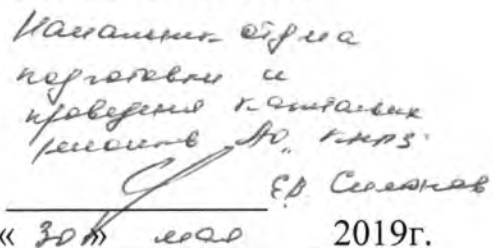 Начальник отдела
подготовки и
проведения капитальных
ремонтов АО "КНПЗ"
Е.В. Симонов
« 30 » мая 2019г.